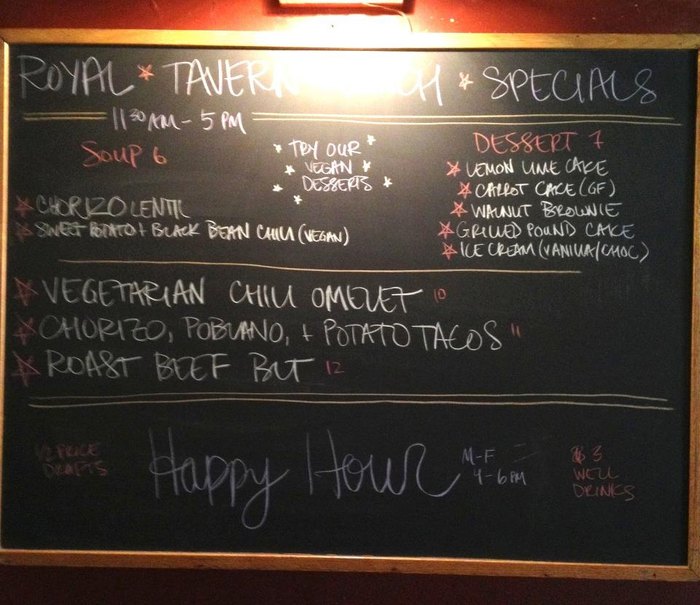 ROYAL ★ TAVERN ★ SPECIALS
11 30 AM - 5 PM
SOUP 6
★ CHORIZO LENTIL
★ SWEET POTATO + BLACK BEAN CHILI (VEGAN)
TRY OUR
VEGAN
DESSERTS
DESSERT 7
★ LEMON LIME CAKE
★ CARROT CAKE (GF)
★ WALNUT BROWNIE
★ GRILLED POUND CAKE
★ ICE CREAM (VANILLA/CHOC)
★ VEGETARIAN CHILI OMELET 10
★ CHORIZO, POBLANO, + POTATO TACOS 11
★ ROAST BEEF BLT 12
1/2 PRICE
DRAFTS
Happy Hour
M-F
4-6PM
$3
WELL
DRINKS